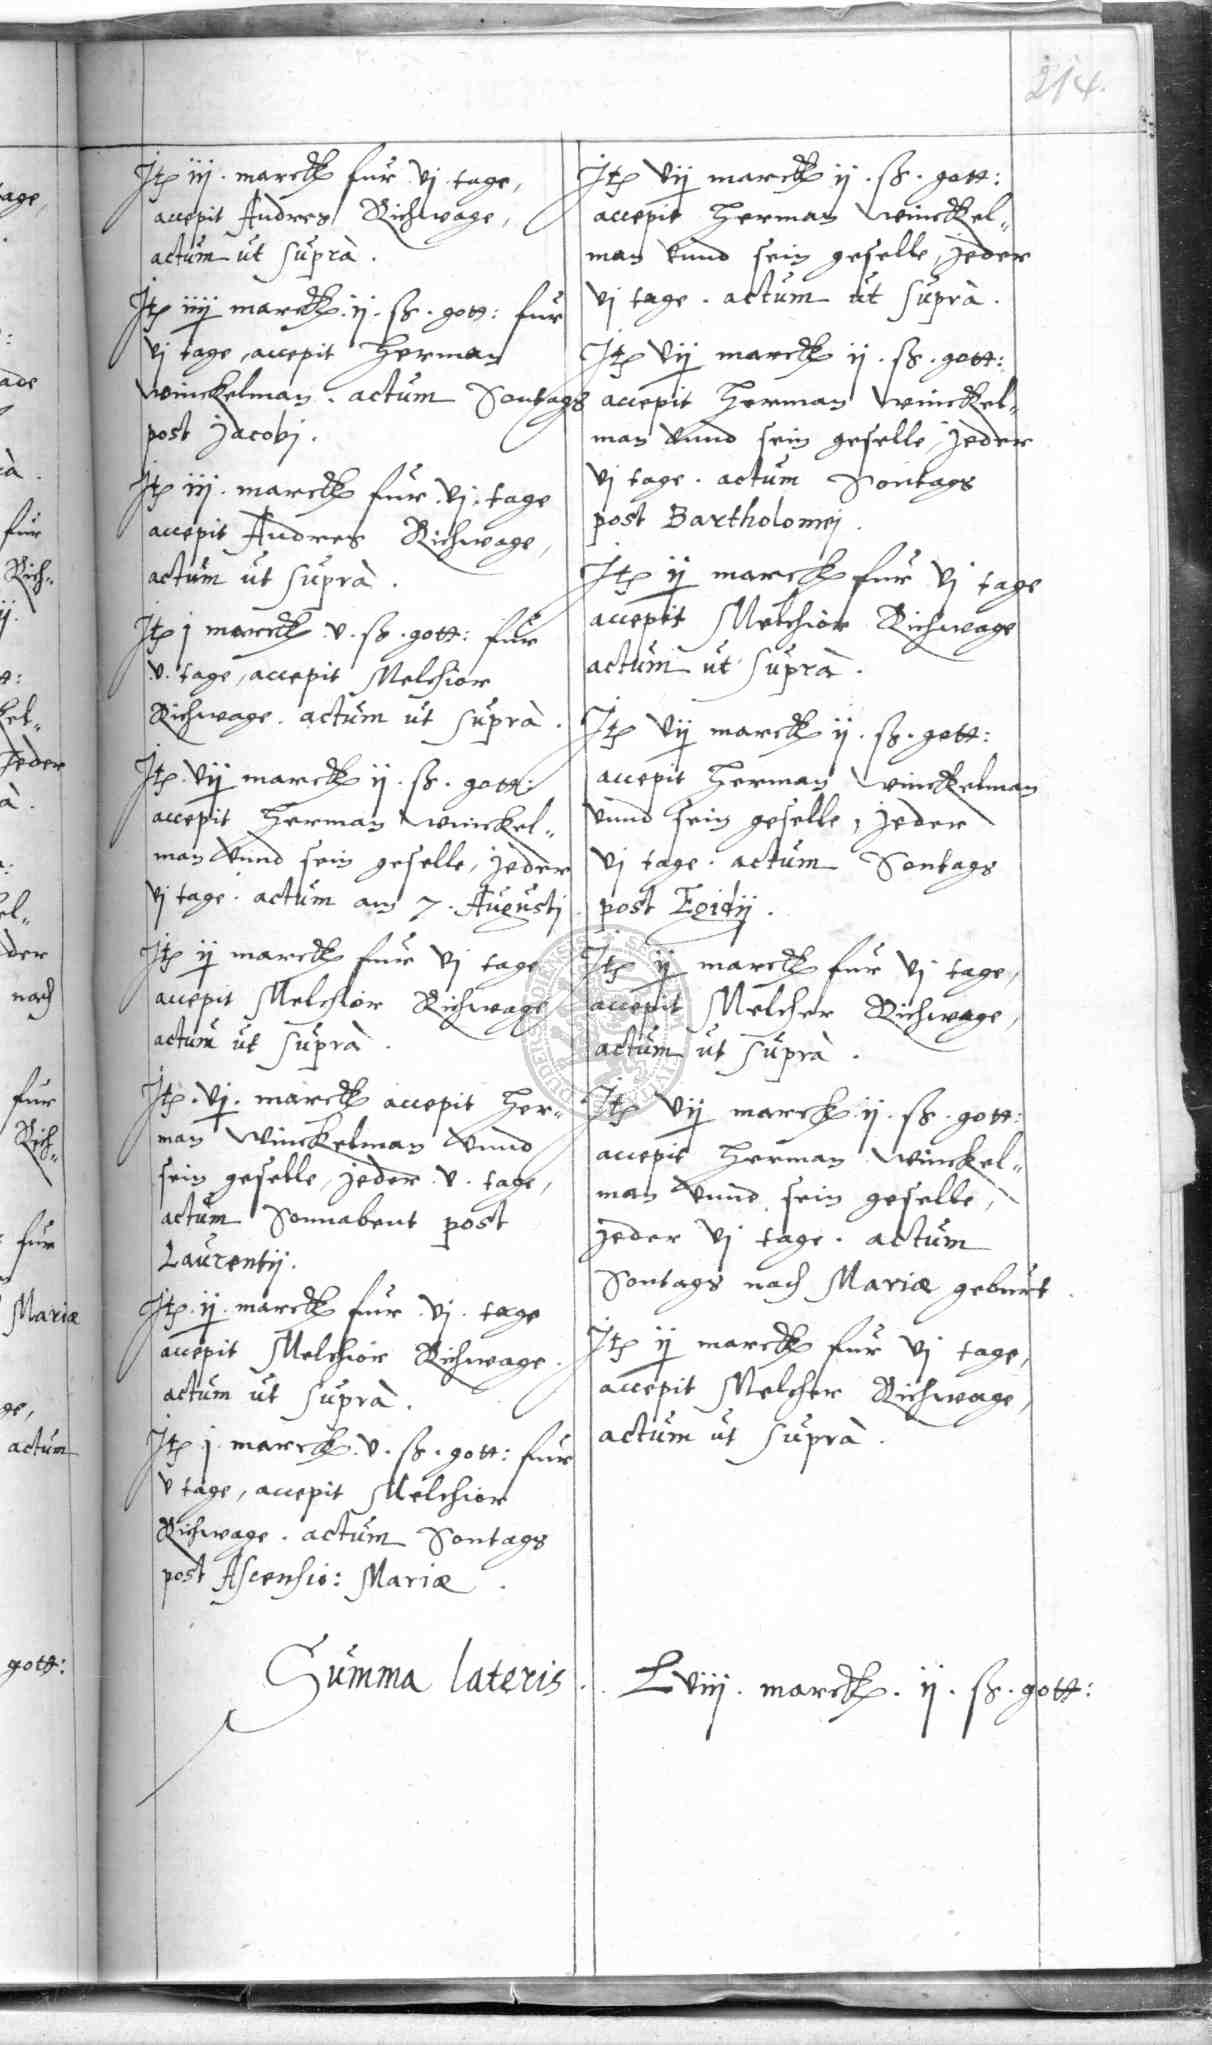 214.
Jtē iij. marck fur vj tage,
accepit Andres Richwage,
actum ut suprà.
Jtē iiij marck. ij. ß. gott: fur
vj tage, accepit Herman
Winckelman. actum Sontags
post Jacobj.
Jtē iij. marck fur. vj. tage
accepit Andres Richwage,
actum ut suprà.
Jtē j marck. v. ß. gott: fur
v. tage, accepit Melchior
Richwage. actum ut suprà.
Jtē. vij marck ij. ß. gott:
accepit Herman Winckel„
man vnnd sein geselle, jeder
vj tage. actum am 7. Augustj.
Jtē ij marck fur vj tage
accepit Melchior Richwage
actum ut suprà.
Jtē. vj. marck accepit Her„
man Winckelman vnnd
sein geselle, jeder. v. tage,
actum Sonnabent post
Laurentij.
Jtē. ij. marck fur. vj. tage
accepit Melchior Richwage.
actum ut suprà.
Jtē j. marck. v. ß. gott: fur
v tage, accepit Melchior
Richwage. actum Sontags
post Ascensio: Mariæ.
Jtē vij marck ij. ß. gott:
accepit Herman Winckel„
man vnnd sein geselle, jeder
vj tage. actum ut suprà.
Jtē vij marck ij. ß. gott:
accepit Herman Winckel„
man vnnd sein geselle, jeder
vj tage. actum Sontags
post Bartholomej.
Jtē ij marck fur vj tage
accepit Melchior Richwage
actum ut suprà.
Jtē vij marck ij. ß. gott:
accepit Herman Winckelman
vnnd sein geselle, jeder
vj tage. actum Sontags
post Egidij.
Jtē ij marck fur vj tage,
accepit Melcher Richwage,
actum ut suprà.
Jtē vij marck. ij. ß. gott:
accepit Herman Winckel„
man vnnd sein geselle,
jeder vj tage. actum
Sontags nach Mariæ geburt.
Jtē ij marck fur vj tage,
accepit Melcher Richwage,
actum ut suprà.
Summa lateris. Lviij. marck. ij. ß. gott: